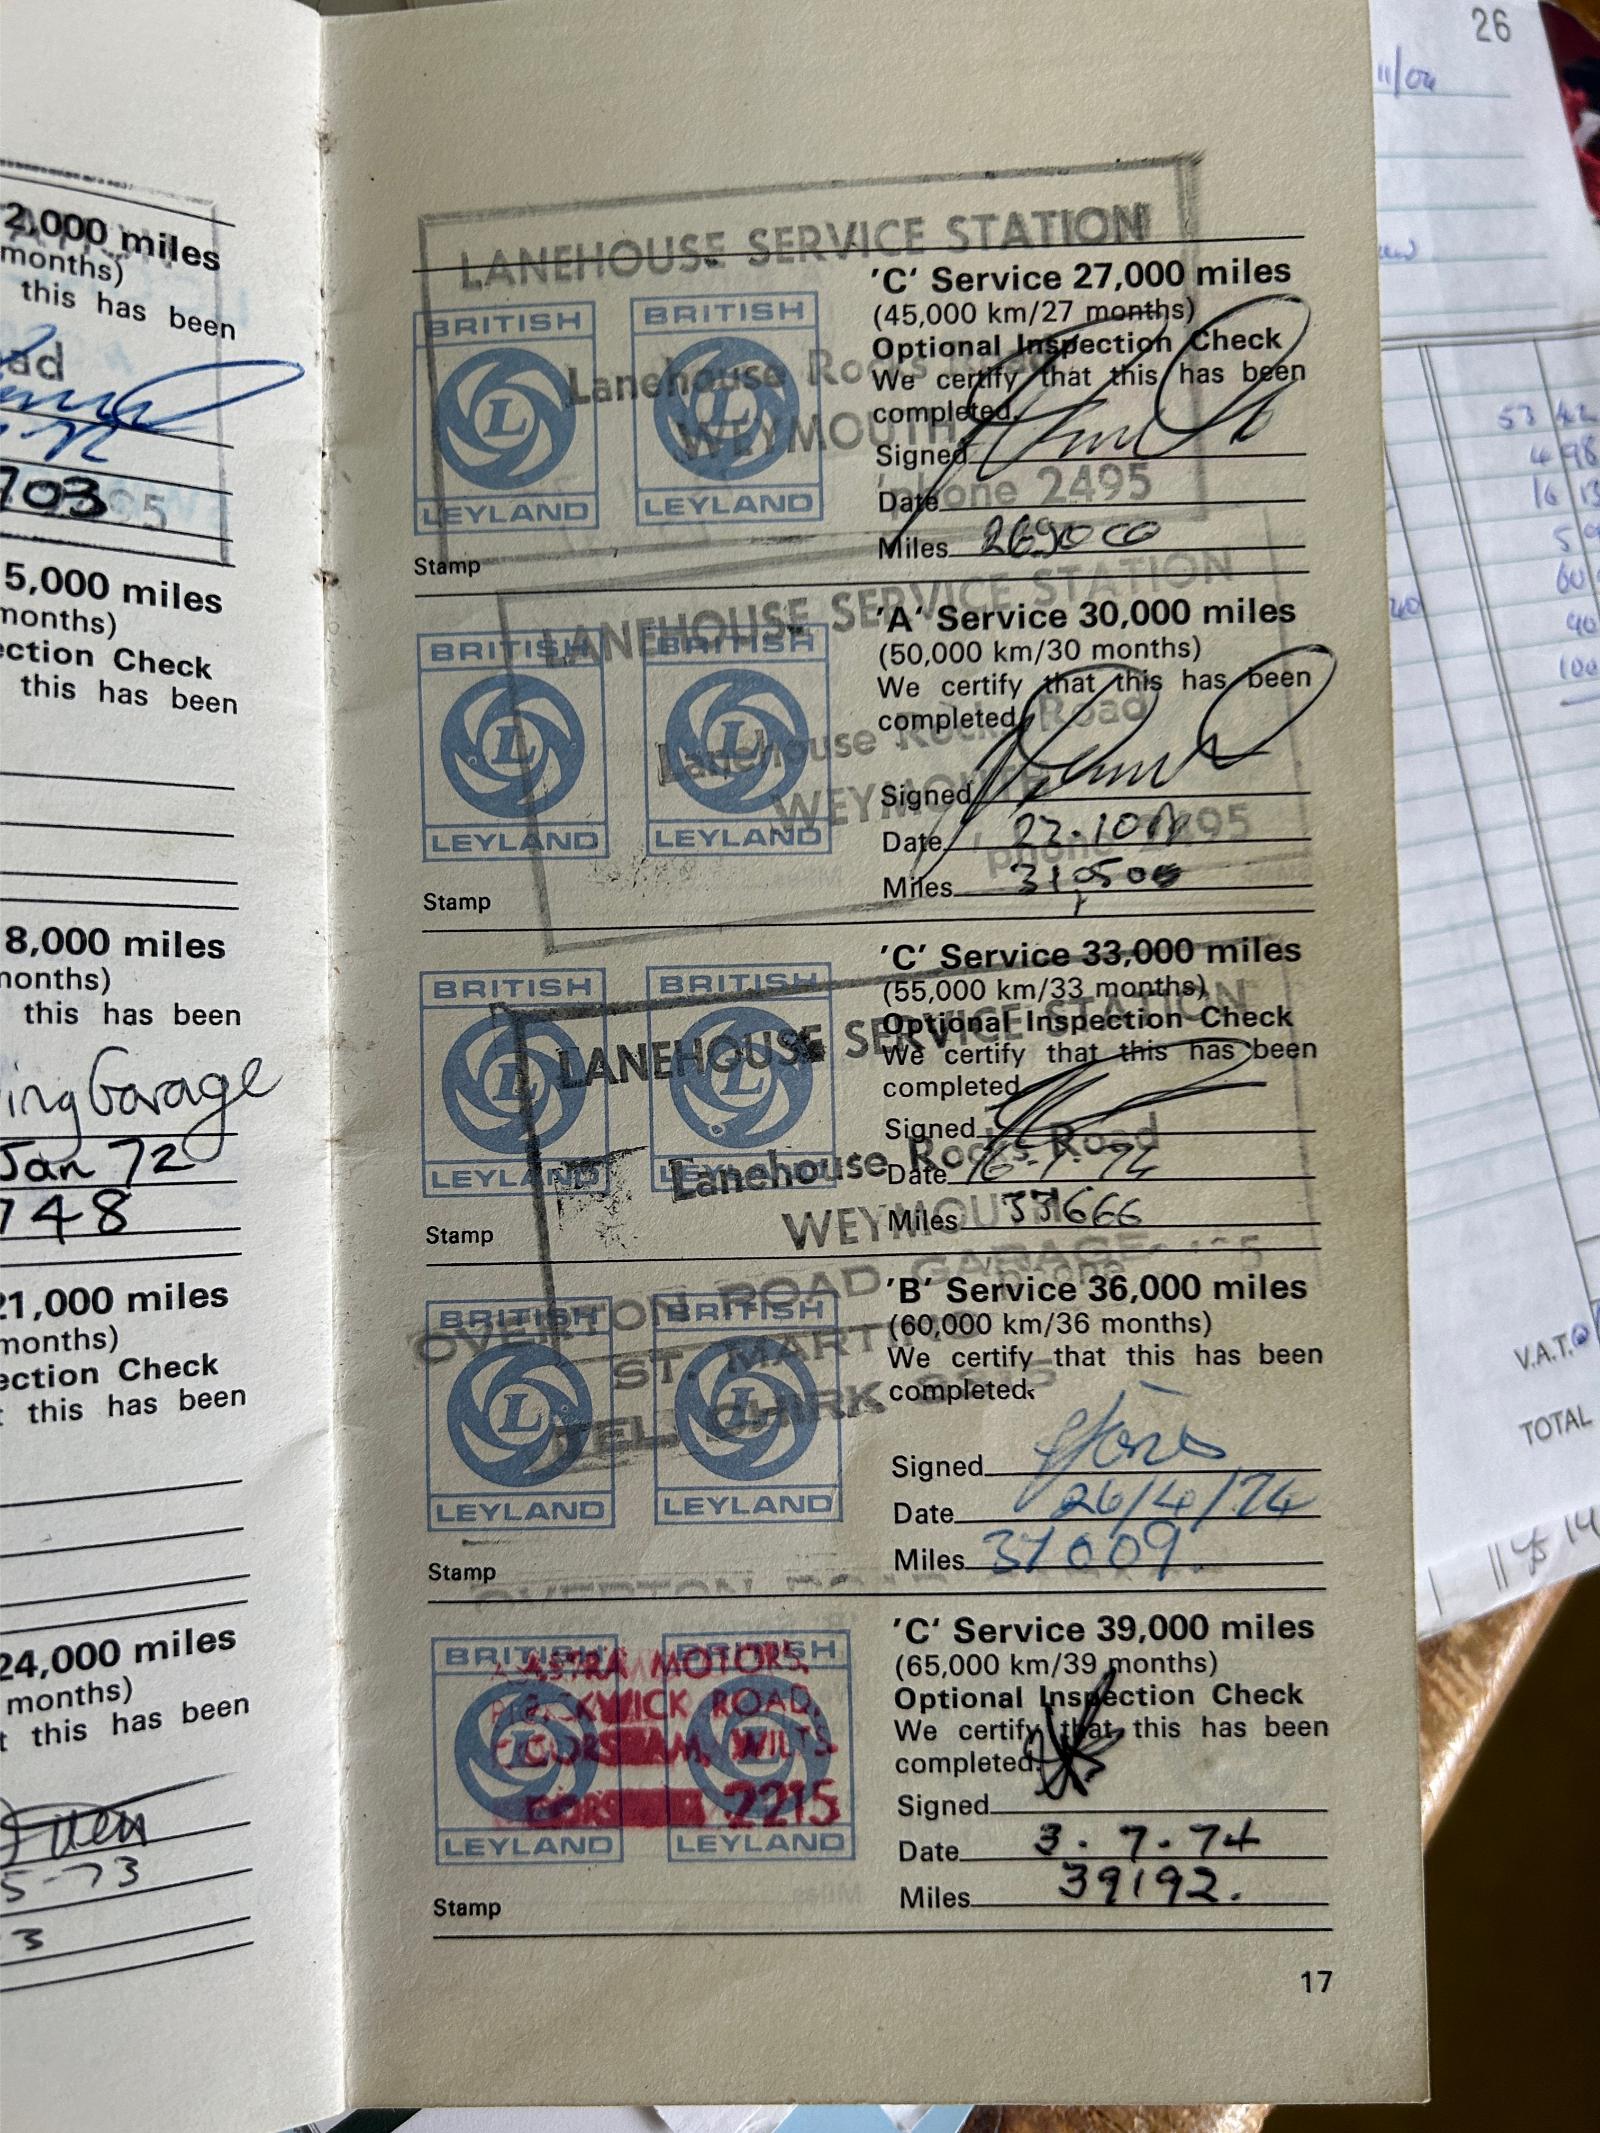 2,000 miles
months)
this has been
ad
703
5,000 miles
months)
ection Check
this has been
8,000 miles
months)
this has been
ing Garage
Jan 72
748
21,000 miles
months)
ection Check
this has been
24,000 miles
months)
t this has been
5-73
3
LANEHOUSE SERVICE STATION
Lanehouse Rocks Road
WEYMOUTH
'phone 2495
BRITISH LEYLAND
BRITISH LEYLAND
'C' Service 27,000 miles
(45,000 km/27 months)
Optional Inspection Check
We certify that this has been
completed.
Signed
Date
Miles
Stamp
LANEHOUSE SERVICE STATION
Lanehouse Rocks Road
WEYMOUTH
'phone 2495
BRITISH LEYLAND
BRITISH LEYLAND
'A' Service 30,000 miles
(50,000 km/30 months)
We certify that this has been
completed
Signed
Date
Miles 31,500
Stamp
LANEHOUSE SERVICE STATION
Lanehouse Rocks Road
WEYMOUTH
BRITISH LEYLAND
BRITISH LEYLAND
'C' Service 33,000 miles
(55,000 km/33 months)
Optional Inspection Check
We certify that this has been
completed
Signed
Date 16-1-74
Miles 33666
Stamp
OVERTON ROAD GARAGE
ST. MARTINS
TEL. CHIRK
BRITISH LEYLAND
BRITISH LEYLAND
'B' Service 36,000 miles
(60,000 km/36 months)
We certify that this has been
completed.
Signed
Date 26/4/74
Miles 37009.
Stamp
MOTORS,
ROAD,
CORSHAM, WILTS.
2215
BRITISH LEYLAND
BRITISH LEYLAND
'C' Service 39,000 miles
(65,000 km/39 months)
Optional Inspection Check
We certify that this has been
completed.
Signed
Date 3.7.74
Miles 39192.
Stamp
17
26
11/04
53 42
4 98
V.A.T.
TOTAL